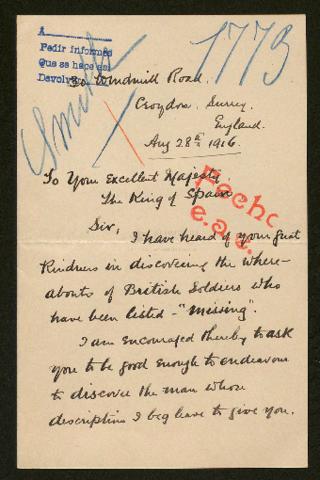 A
Pedir informes
Que se hace así
Devolver
Smith
1773
30, Windmill Road.
Croydon, Surrey.
England.
Aug 28th 1916.
To Your Excellent Majesty
The King of Spain
Hecho
Sir,
I have heard of your great
Kindness in discovering the where-
abouts of British Soldiers who
have been listed - "missing".
I am encouraged thereby to ask
you to be good enough to endeavour
to discover the man whose
description I beg leave to give you.